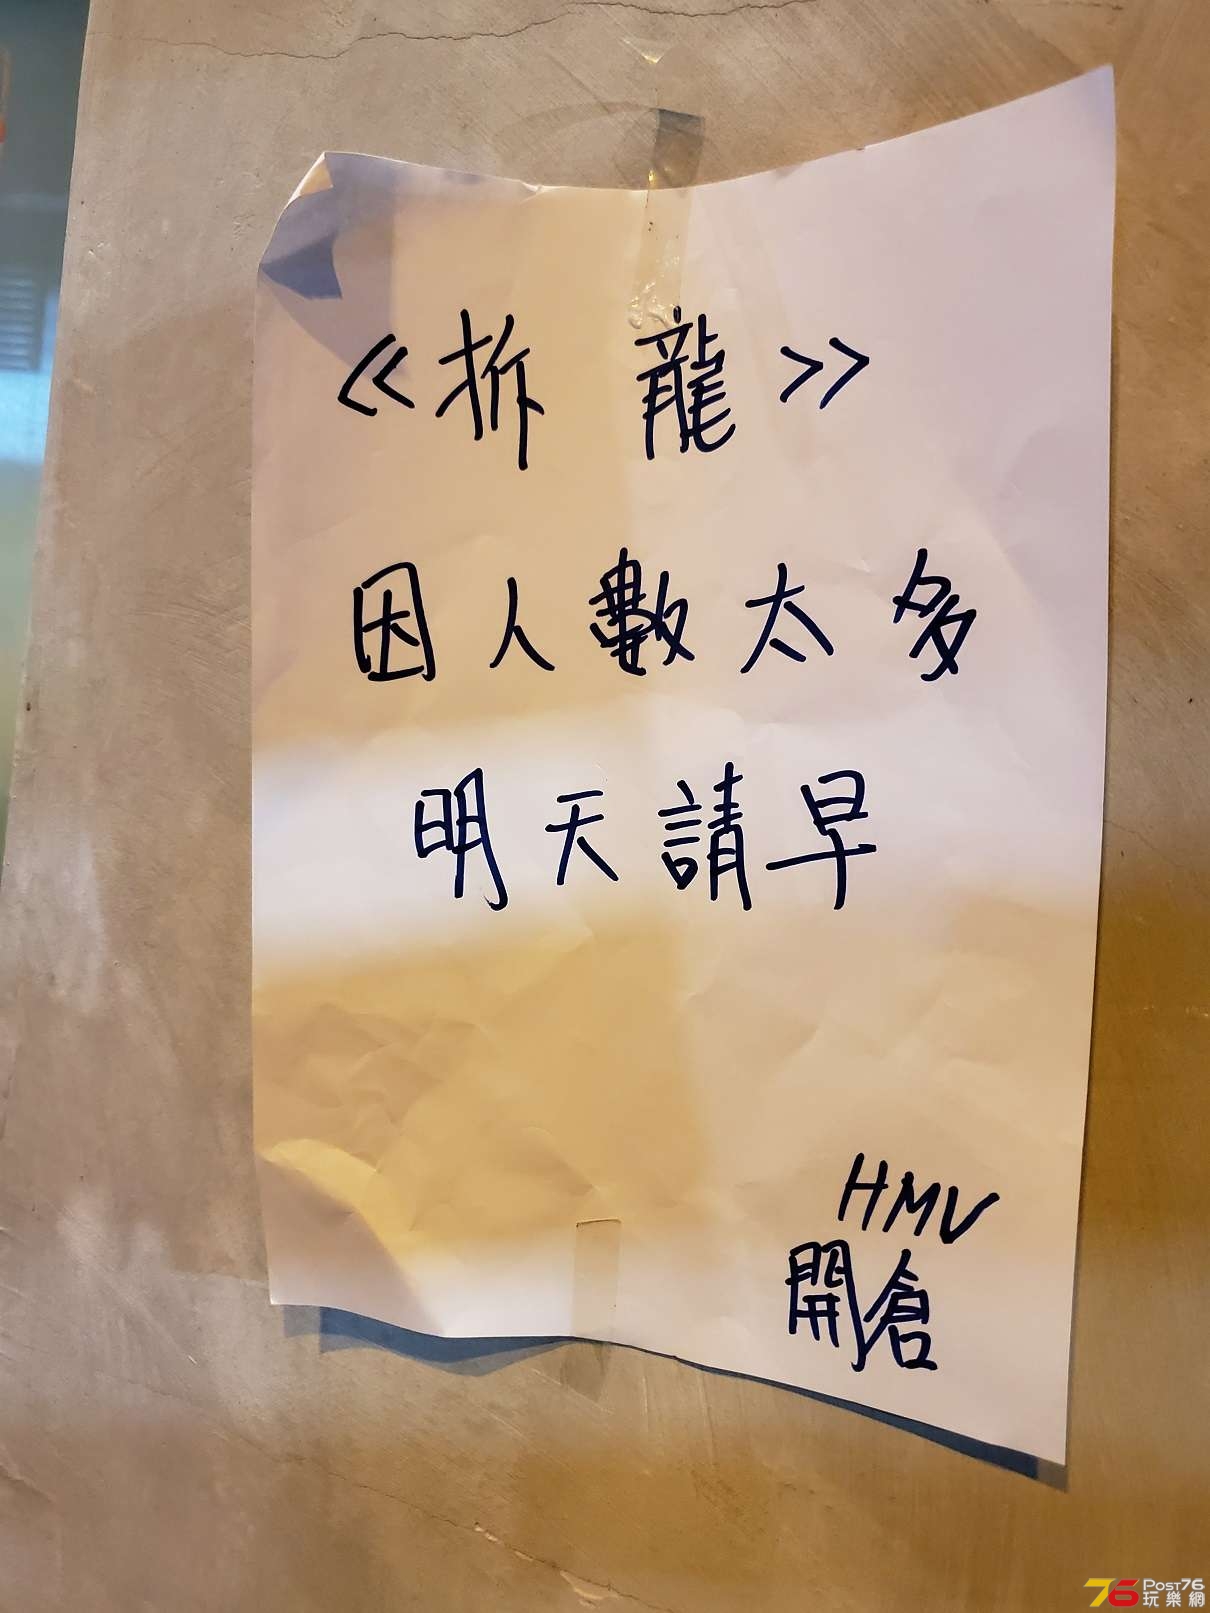 <<拆 龍>>
因人數太多
明天請早
HMV
開倉
76 POST76
玩樂網